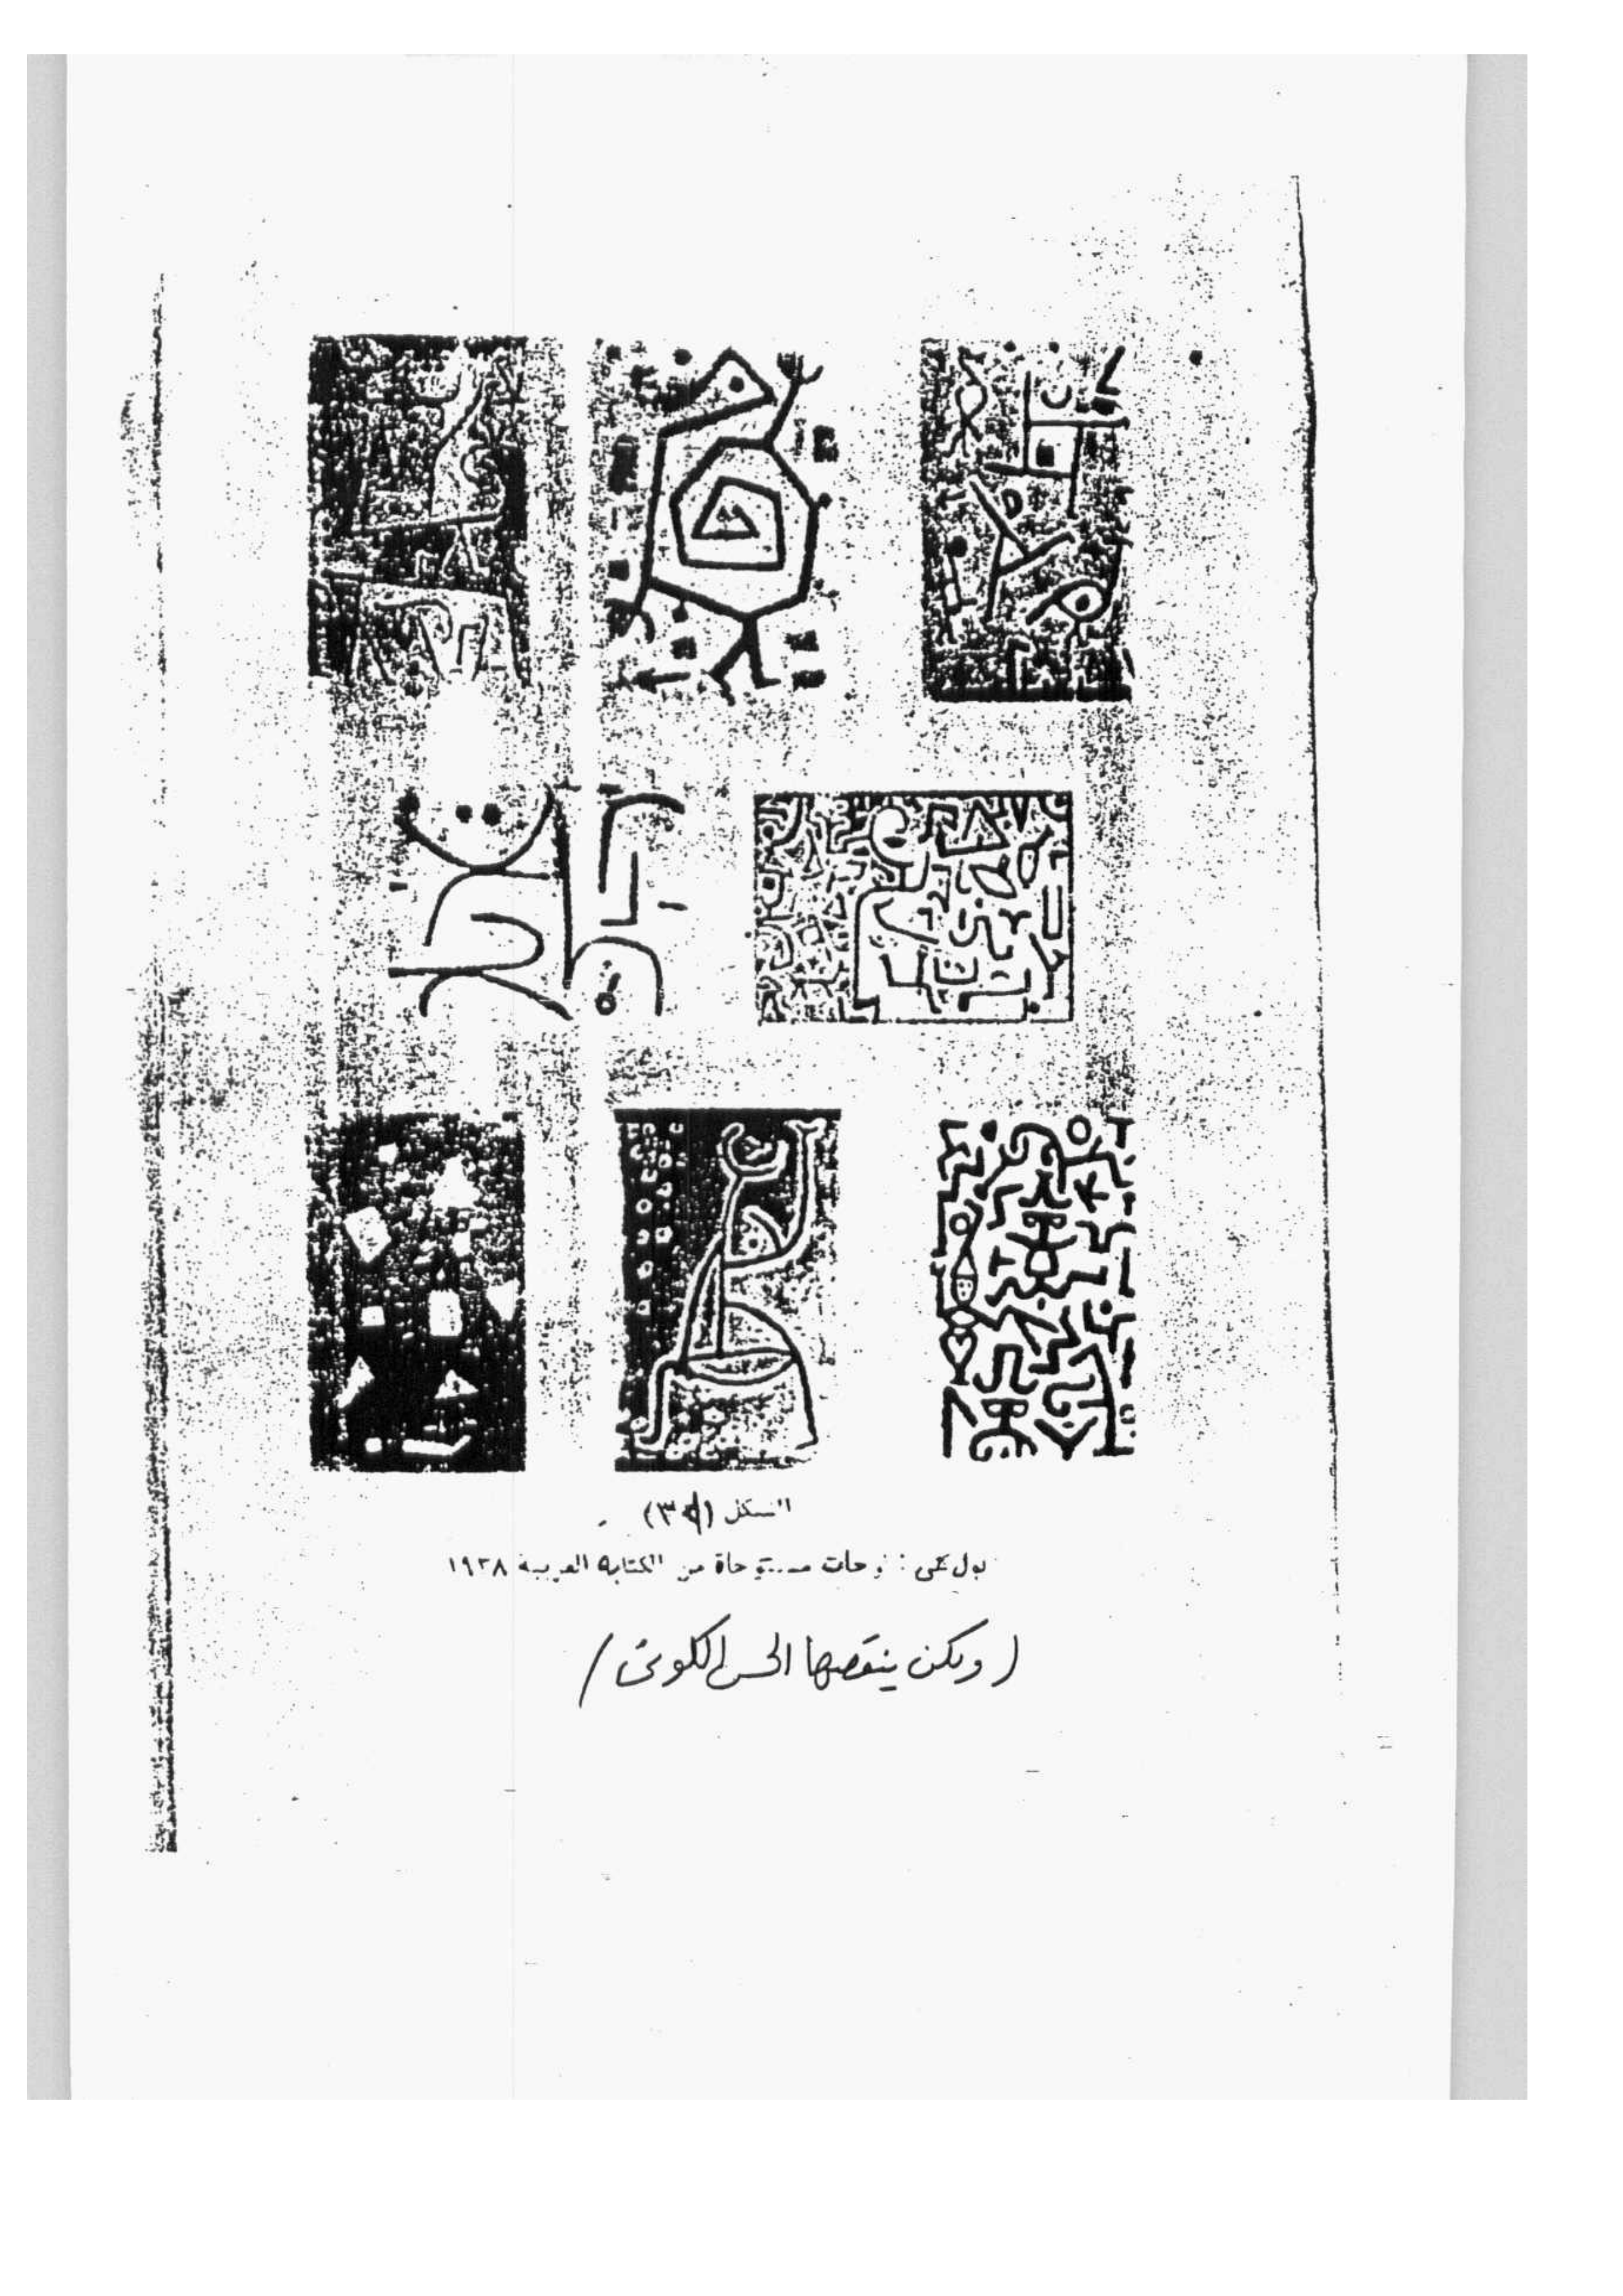 الشكل (٣٩)
بول كلي : لوحات مستوحاة من الكتابة العربية ١٩٣٨
(ولكن ينقصها الحس الكوني)